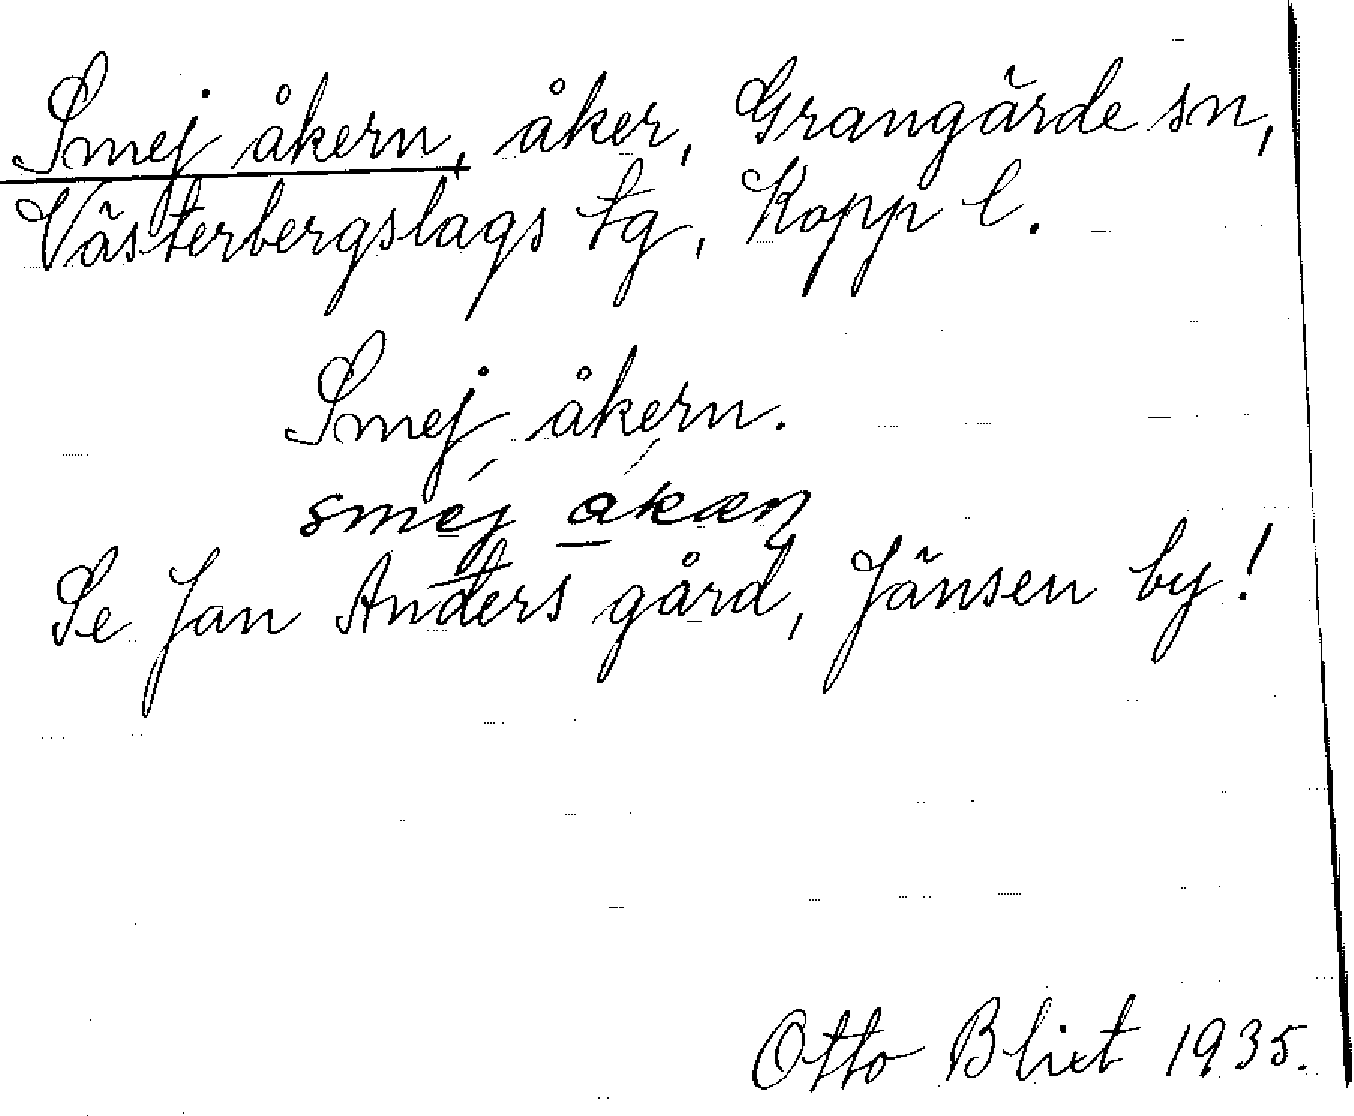 Smej åkern, åker, Grangärde sn,
Västerbergslags tg, Kopp l.
Smej åkern.
Se Jan Anders gård, Jänsen by!
Otto Blixt 1935.